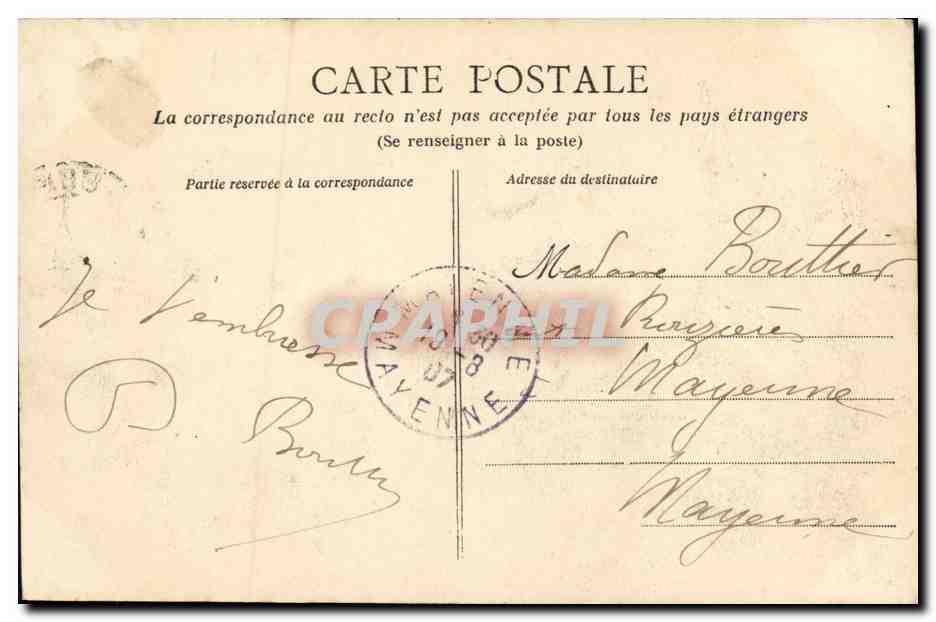 CARTE POSTALE
La correspondance au recto n'est pas acceptée par tous les pays étrangers
(Se renseigner à la poste)
Partie réservée à la correspondance
Adresse du destinataire
Je t'embrasse
Madame Bouttier
Rouzières
Mayenne
Mayenne
MAYENNE
MAYENNE
30
19 -8
07
CPAPHIL